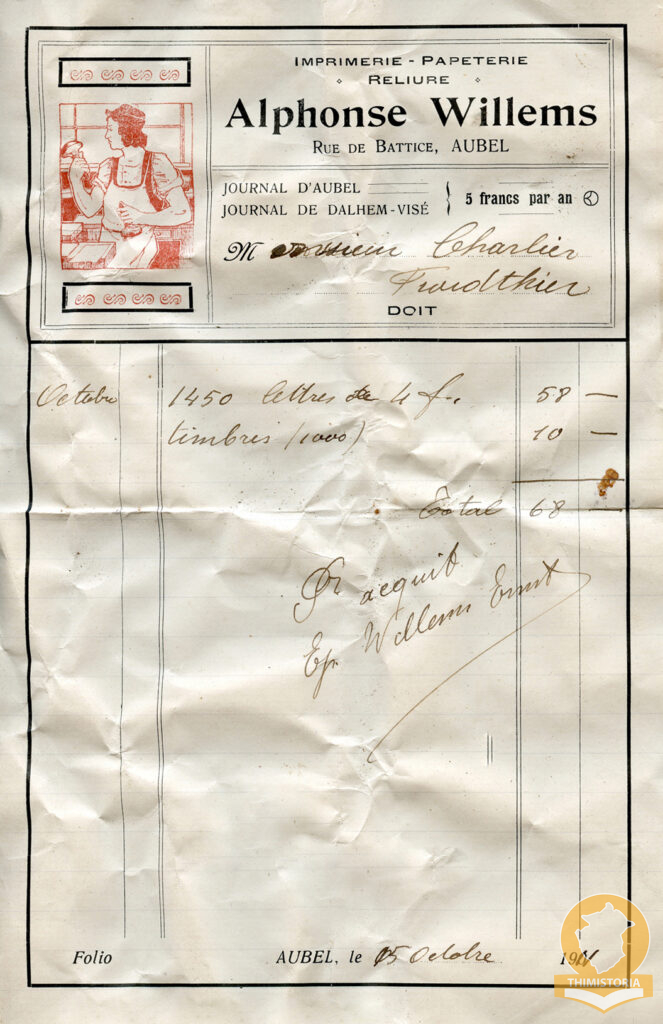 IMPRIMERIE - PAPETERIE
RELIURE
Alphonse Willems
RUE DE BATTICE, AUBEL
JOURNAL D'AUBEL
JOURNAL DE DALHEM-VISÉ
5 francs par an
Monsieur Charlier
Froidthier
DOIT
Octobre 1450 lettres de 4 f. 58 —
timbres (1000) 10 —
Total 68 —
Pr acquit
Ep. Willems Ernst
Folio AUBEL, le 15 Octobre 19
THIMISTORIA